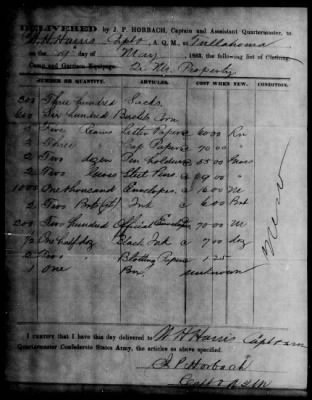 DELIVERED by J. P. HORBACH, Captain and Assistant Quartermaster, to
W H Harris Capt A. Q. M., Tullahoma
on the 19th day of May, 1863, the following list of Clothing,
Camp and Garrison Equipage. Qr Mr Property
NUMBER OR QUANTITY. ARTICLES. COST WHEN NEW. CONDITION.
300 Three hundred Sacks
600 Six hundred Bushels Corn
Five Reams Letter Paper @ 60 00 Rm
2 Three " Cap Paper @ 70 00 "
2 Two dozen Pen holders @ 25 00 Gross
2 Two Gross Steel Pens @ 9 00 "
1000 One thousand Envelopes @ 16 00 M
2 Two Bot Ink @ 6 00 Bot
200 Two hundred Official Envelopes 70 00 M
1/2 One half doz Black Ink @ 7 00 doz
2 Two " Blotting Paper @ 1 25
1 One Box unknown
New
I CERTIFY that I have this day delivered to W H Harris Capt &
Quartermaster Confederate States Army, the articles as above specified.
J. P. Horbach
Capt & A Q M